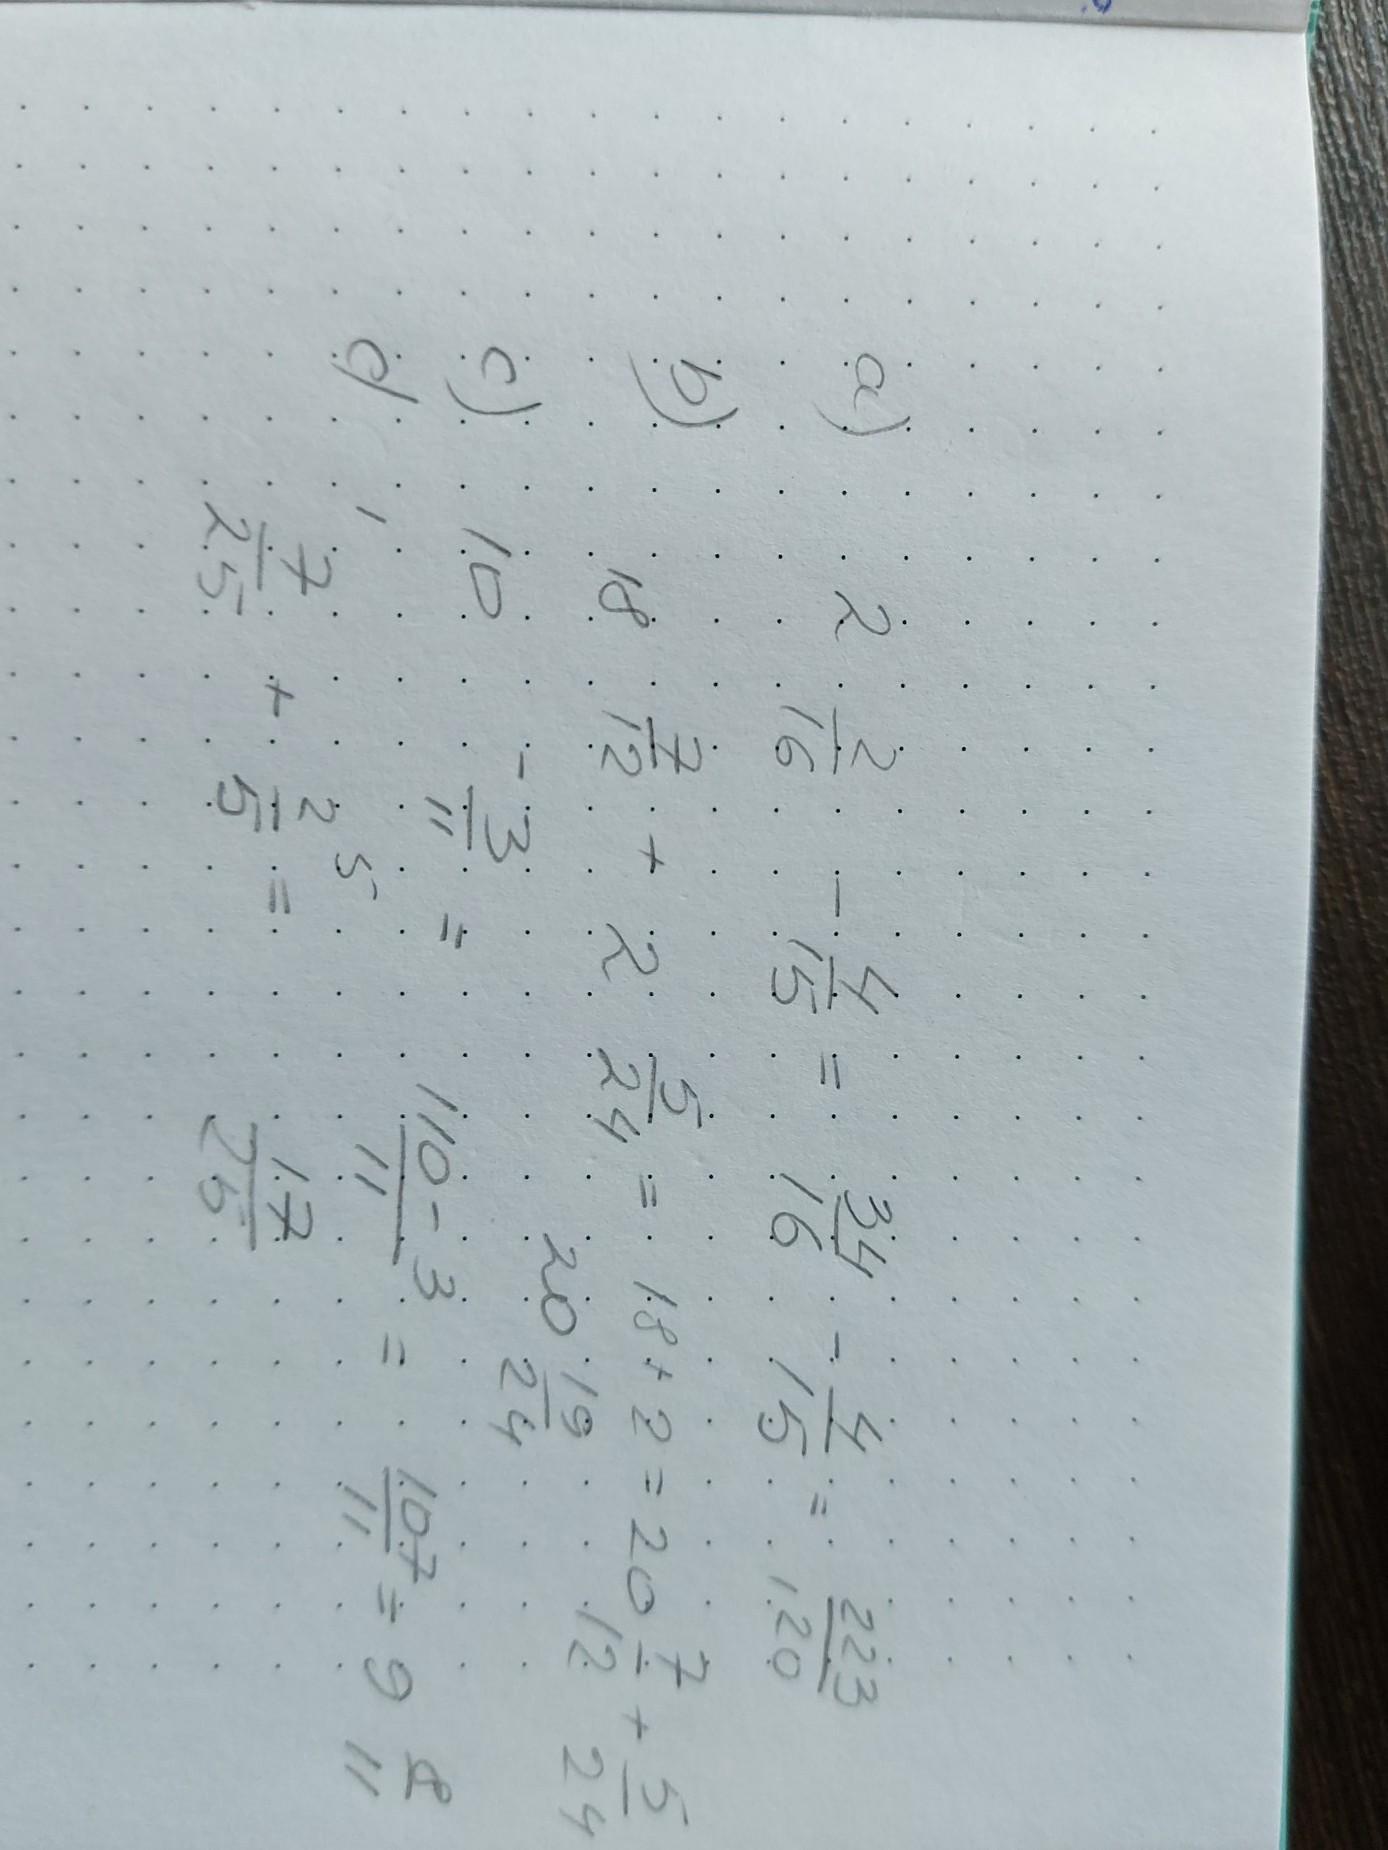 a) 2 2/16 - 4/15 = 34/16 - 4/15 = 223/120
b) 18 7/12 + 2 5/24 = 18 + 2 = 20 7/12 + 5/24
20 19/24
c) 10 - 3/11 = 110 - 3/11 = 107/11 = 9
d) 7/25 + 2/5 = 17/25
5